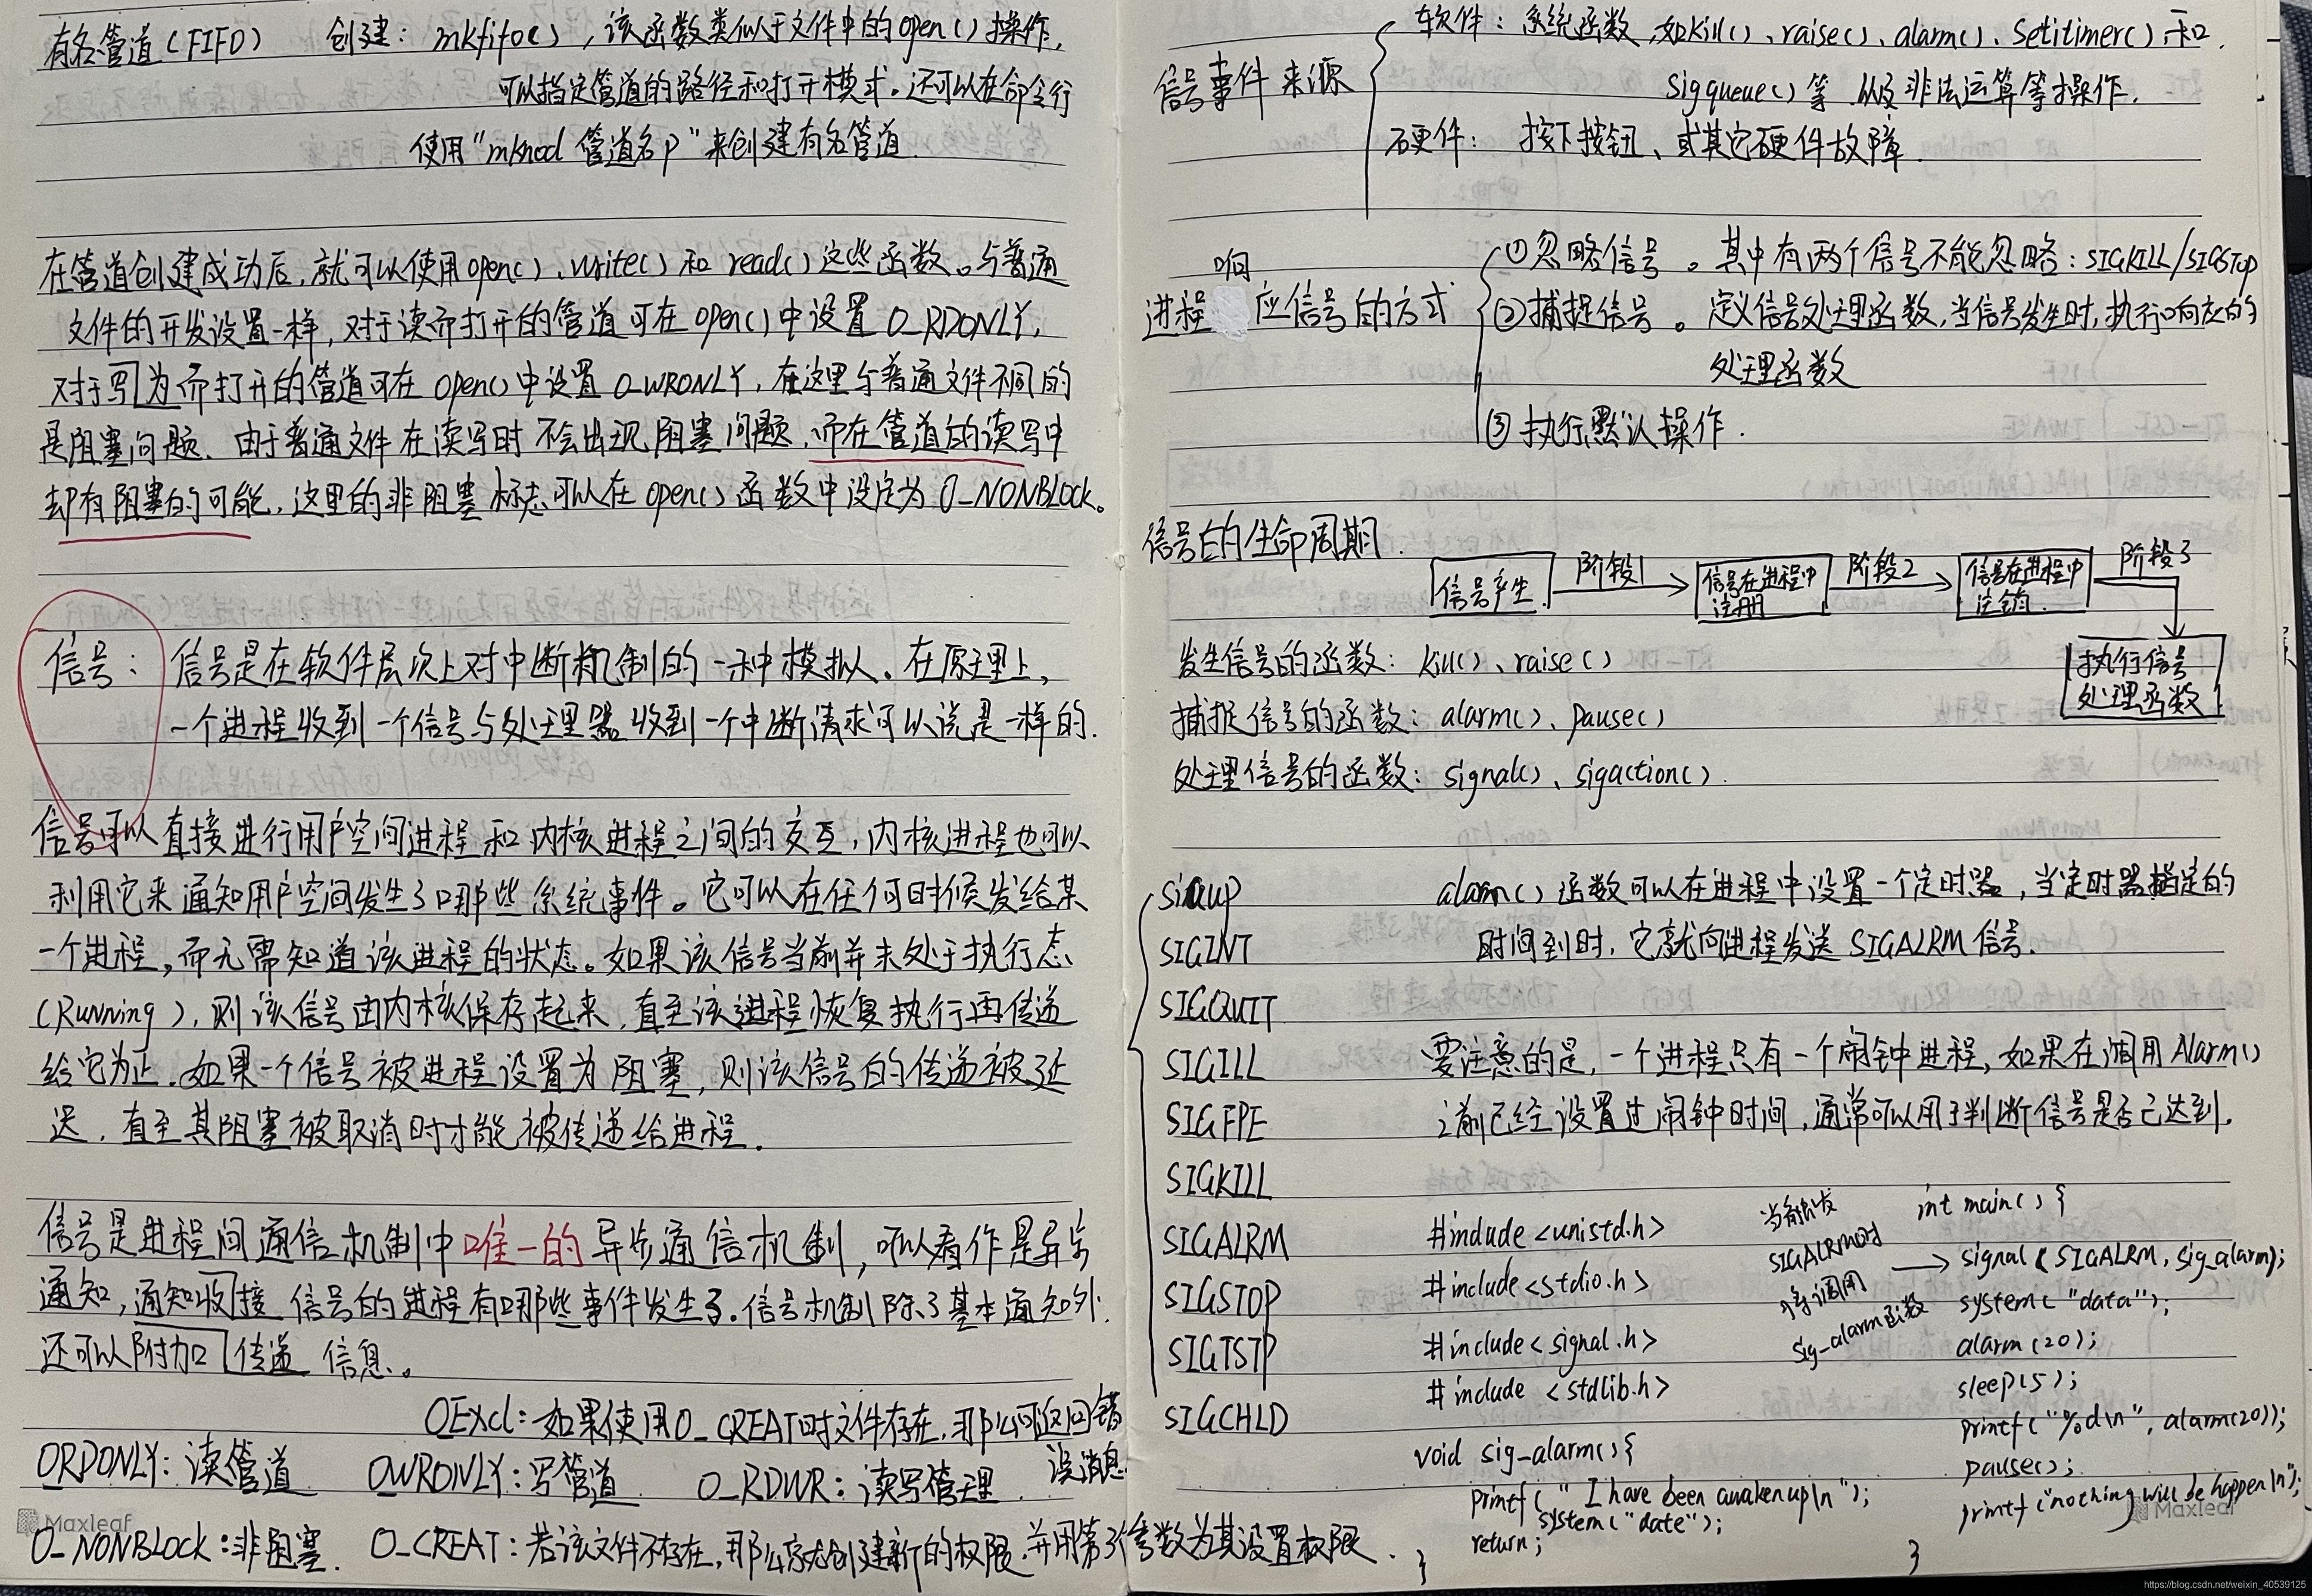 有名管道(FIFO) 创建: mkfifo(),该函数类似于文件中的open()操作,
可以指定管道的路径和打开模式。还可以在命令行
使用"mknod 管道名p"来创建有名管道.
在管道创建成功后,就可以使用open()、write()和read()这些函数。与普通
文件的开发设置一样,对于读而打开的管道可在open()中设置O_RDONLY,
对于写为而打开的管道可在open()中设置O_WRONLY,在这里与普通文件不同的
是阻塞问题、由于普通文件在读写时不会出现阻塞问题,而在管道的读写中
却有阻塞的可能,这里的非阻塞标志可以在open()函数中设定为O_NONBLOCK。
信号: 信号是在软件层次上对中断机制的一种模拟。在原理上,
一个进程收到一个信号与处理器收到一个中断请求可以说是一样的.
信号可以直接进行用户空间进程和内核进程之间的交互,内核进程也可以
利用它来通知用户空间发生了哪些系统事件。它可以在任何时候发给某
一个进程,而无需知道该进程的状态。如果该信号当前并未处于执行态
(Running),则该信号由内核保存起来,直至该进程恢复执行再传递
给它为止.如果一个信号被进程设置为阻塞,则该信号的传递被延
迟,直至其阻塞被取消时才能被传递给进程.
信号是进程间通信机制中唯一的异步通信机制,可以看作是异步
通知,通知收接信号的进程有哪些事件发生了.信号机制除了基本通知外.
还可以附加传递 信息。
O_Excl:如果使用O_CREAT时文件存在,那么可返回错
误消息
O_RDONLY:读管道 O_WRONLY:写管道 O_RDWR:读写管理.
O_NONBLOCK:非阻塞. O_CREAT:若该文件不存在,那么就创建新的权限.并用第3个参数为其设置权限.
信号事件来源
软件: 系统函数,如kill()、raise()、alarm()、Setitimer()和.
Sigqueue()等 以及非法运算等操作.
硬件: 按下按钮、或其它硬件故障.
进程响应信号的方式
①忽略信号。其中有两个信号不能忽略:SIGKILL/SIGSTOP
②捕捉信号。定义信号处理函数,当信号发生时,执行响应的
处理函数
③执行默认操作.
信号的生命周期.
信号产生. 阶段1 信号在进程中注册 阶段2 信号在进程中注销. 阶段3
执行信号
处理函数
发生信号的函数: kill()、raise()
捕捉信号的函数: alarm()、pause()
处理信号的函数: signal()、sigaction().
SIGINT
SIGQUIT
SIGILL
SIGFPE
SIGKILL
SIGALRM
SIGSTOP
SIGTSTP
SIGCHLD
alarm()函数可以在进程中设置一个定时器,当定时器指定的
时间到时,它就向进程发送SIGALRM信号.
要注意的是,一个进程只有一个闹钟进程,如果在调用Alarm()
之前已经设置过闹钟时间,通常可以用于判断信号是否已达到.
#include <unistd.h>
#include <stdio.h>
#include <signal.h>
#include <stdlib.h>
void sig_alarm(){
printf(" I have been awaken up\n");
system("date");
return;
}
当触发
SIGALRM时
将调用
sig_alarm函数
int main(){
signal(SIGALRM, sig_alarm);
system("data");
alarm(20);
sleep(5);
printf("%d\n", alarm(20));
pause();
printf("nothing will be happen\n");
}
Maxleaf
Maxleaf
https://blog.csdn.net/weixin_40539125